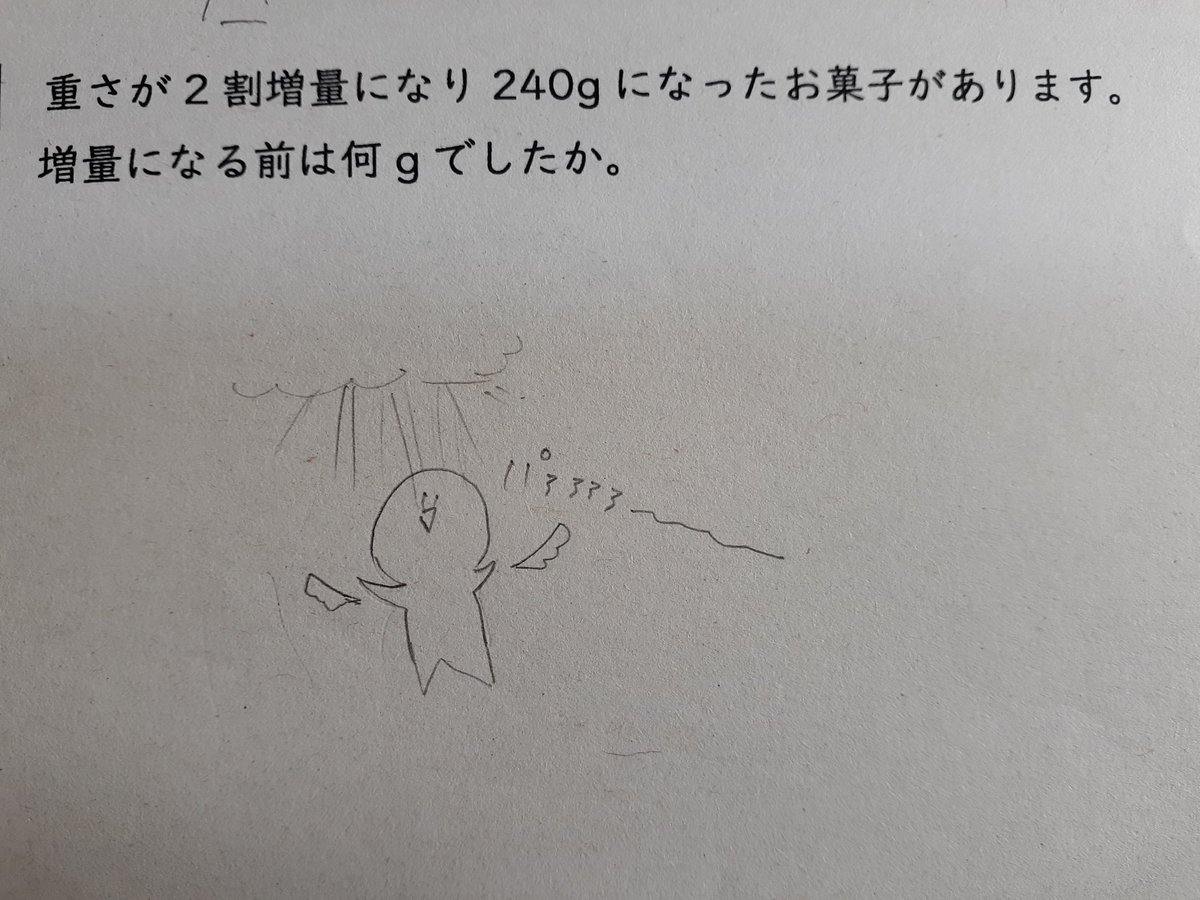 重さが2割増量になり240gになったお菓子があります。
増量になる前は何gでしたか。